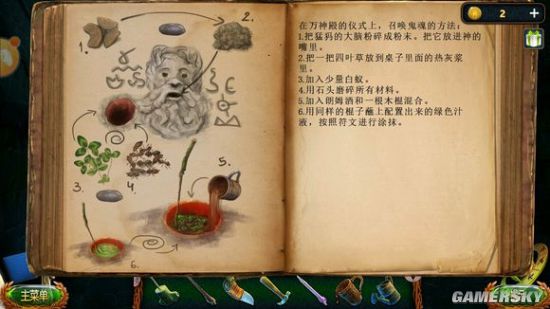 2
在万神殿的仪式上,召唤鬼魂的方法:
1.把猛犸的大脑粉碎成粉末。把它放进神的
嘴里。
2.把一把四叶草放到桌子里面的热灰浆
里。
3.加入少量白蚁。
4.用石头磨碎所有材料。
5.加入朗姆酒和一根木棍混合。
6.用同样的棍子蘸上配置出来的绿色汁
液,按照符文进行涂抹。
1.
2.
3.
4.
5.
6.
主菜单
GAMERSKY